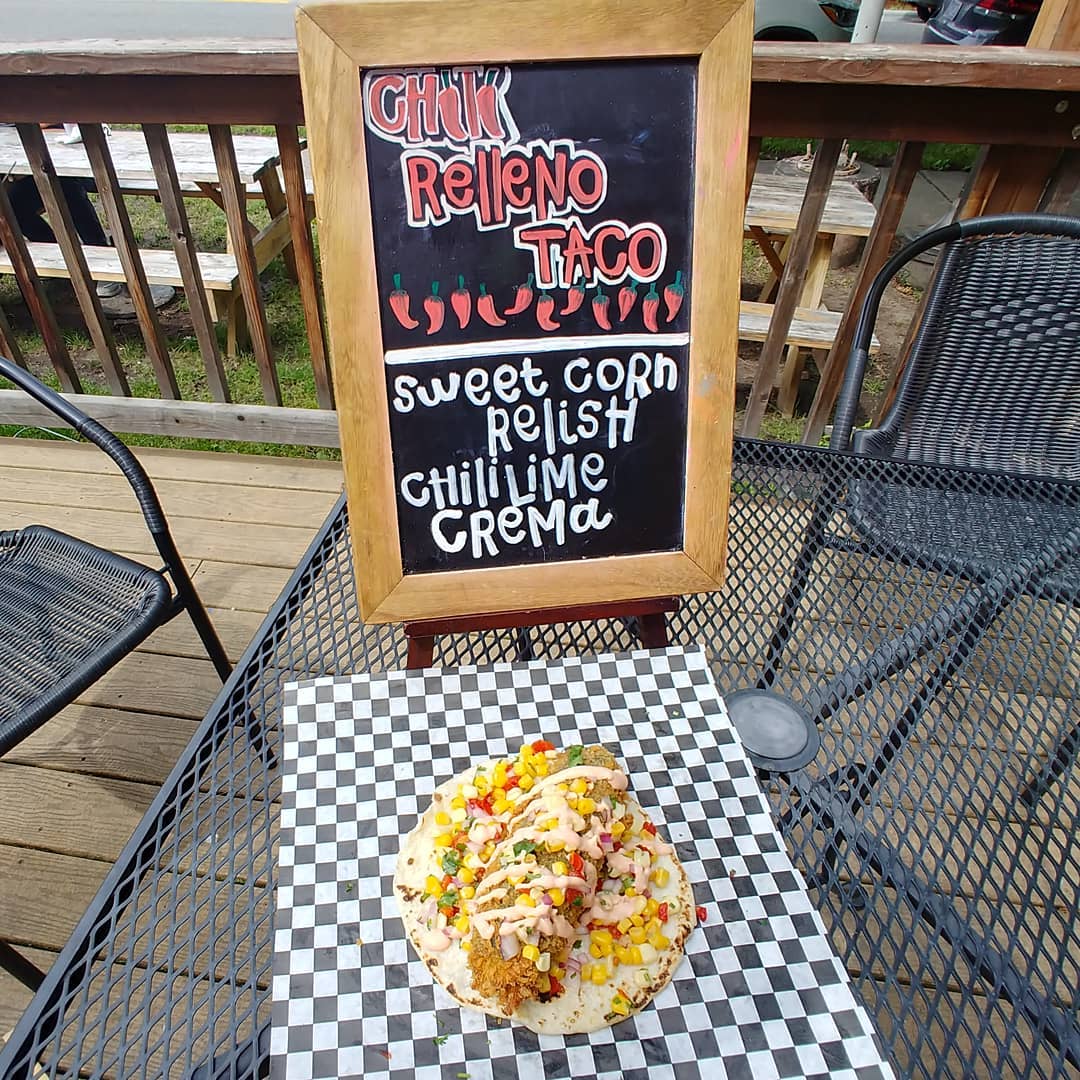 CHILI
RelleNO
TACO
sweet CORn
RelisH
CHiliLIME
CREMa